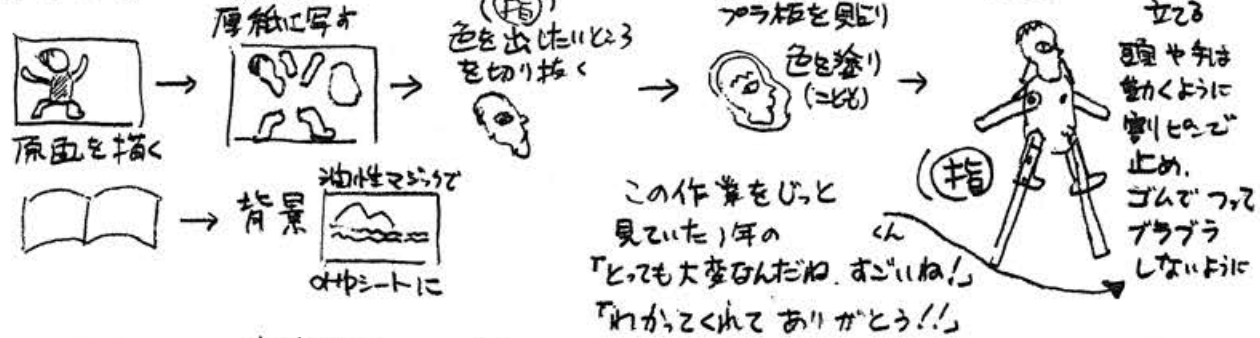 原画を描く
厚紙に写す
(指)
色を出したいところ
を切り抜く
プラ板を貼り
色を塗り
(こども)
立てる
頭や手は
動くように
割ピンで
止め、
ゴムでつって
ブラブラ
しないように
(指)
背景
油性マジックで
OHPシートに
この作業をじっと
見ていた1年の くん
「とっても大変なんだね。すごいね!」
「わかってくれて ありがとう!!」